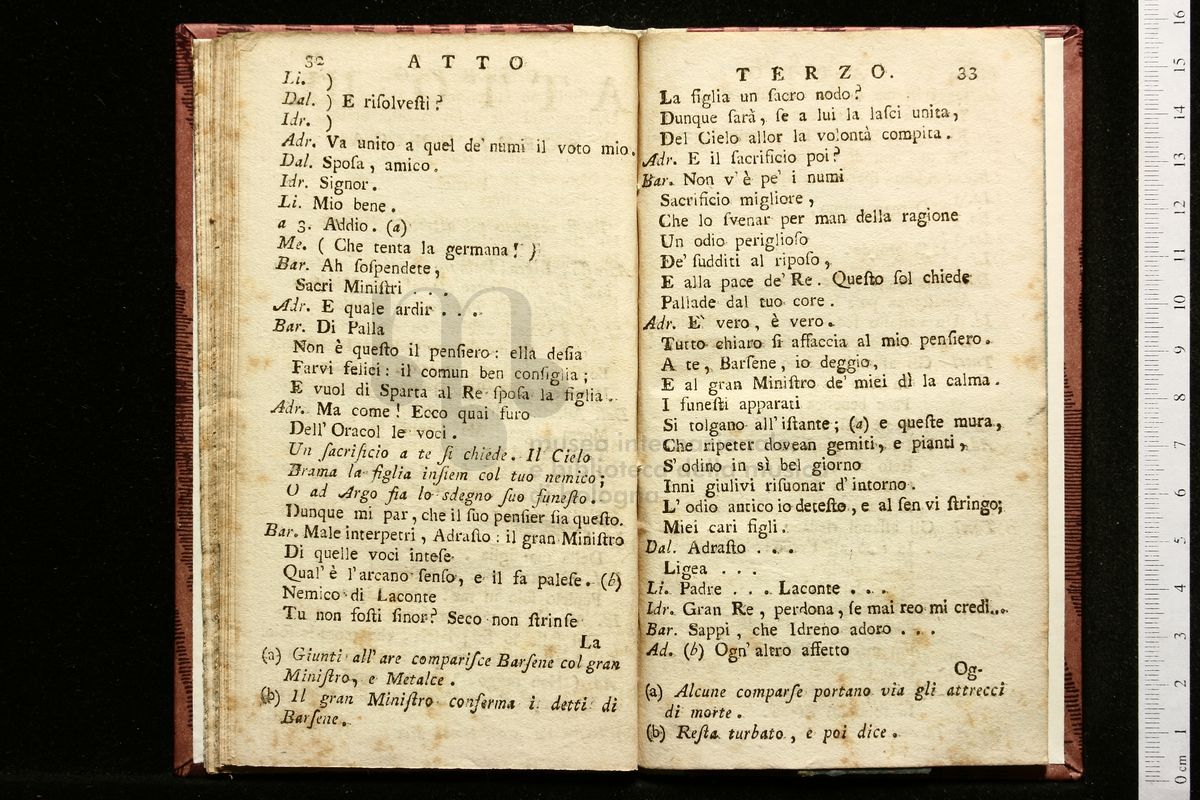 32 ATTO
Li. )
Dal. ) E riſolveſti?
Idr. )
Adr. Va unito a quel de' numi il voto mio.
Dal. Spoſa, amico.
Idr. Signor.
Li. Mio bene.
a 3. Addio. (a)
Me. ( Che tenta la germana! )
Bar. Ah ſoſpendete,
Sacri Miniſtri . . .
Adr. E quale ardir . . .
Bar. Di Palla
Non è queſto il penſiero: ella deſia
Farvi felici: il comun ben conſiglia;
E vuol di Sparta al Re ſpoſa la figlia.
Adr. Ma come! Ecco quai furo
Dell' Oracol le voci.
Un ſacrificio a te ſi chiede. Il Cielo
Brama la figlia inſiem col tuo nemico;
O ad Argo fia lo sdegno ſuo funeſto.
Dunque mi par, che il ſuo penſier ſia queſto.
Bar. Male interpetri, Adraſto: il gran Miniſtro
Di quelle voci inteſe
Qual' è l'arcano ſenſo, e il fa paleſe. (b)
Nemico di Laconte
Tu non foſti ſinor? Seco non ſtrinſe
La
(a) Giunti all' are compariſce Barſene col gran
Miniſtro, e Metalce.
(b) Il gran Miniſtro conferma i detti di
Barſene.
TERZO. 33
La figlia un ſacro nodo?
Dunque ſarà, ſe a lui la laſci unita,
Del Cielo allor la volontà compita.
Adr. E il ſacrificio poi?
Bar. Non v' è pe' i numi
Sacrificio migliore,
Che lo ſvenar per man della ragione
Un odio periglioſo
De' ſudditi al ripoſo,
E alla pace de' Re. Queſto ſol chiede
Pallade dal tuo core.
Adr. E' vero, è vero.
Tutto chiaro ſi affaccia al mio penſiero.
A te, Barſene, io deggio,
E al gran Miniſtro de' miei dì la calma.
I funeſti apparati
Si tolgano all' iſtante; (a) e queſte mura,
Che ripeter dovean gemiti, e pianti,
S' odino in sì bel giorno
Inni giulivi riſuonar d' intorno.
L' odio antico io deteſto, e al ſen vi ſtringo;
Miei cari figli.
Dal. Adraſto . . .
Ligea . . .
Li. Padre . . . Laconte . . .
Idr. Gran Re, perdona, ſe mai reo mi credi...
Bar. Sappi, che Idreno adoro . . .
Ad. (b) Ogn' altro affetto
Og-
(a) Alcune comparſe portano via gli attrecci
di morte.
(b) Reſta turbato, e poi dice.
m
museo internazionale
e biblioteca della musica
di bologna
0 cm 1 2 3 4 5 6 7 8 9 10 11 12 13 14 15 16